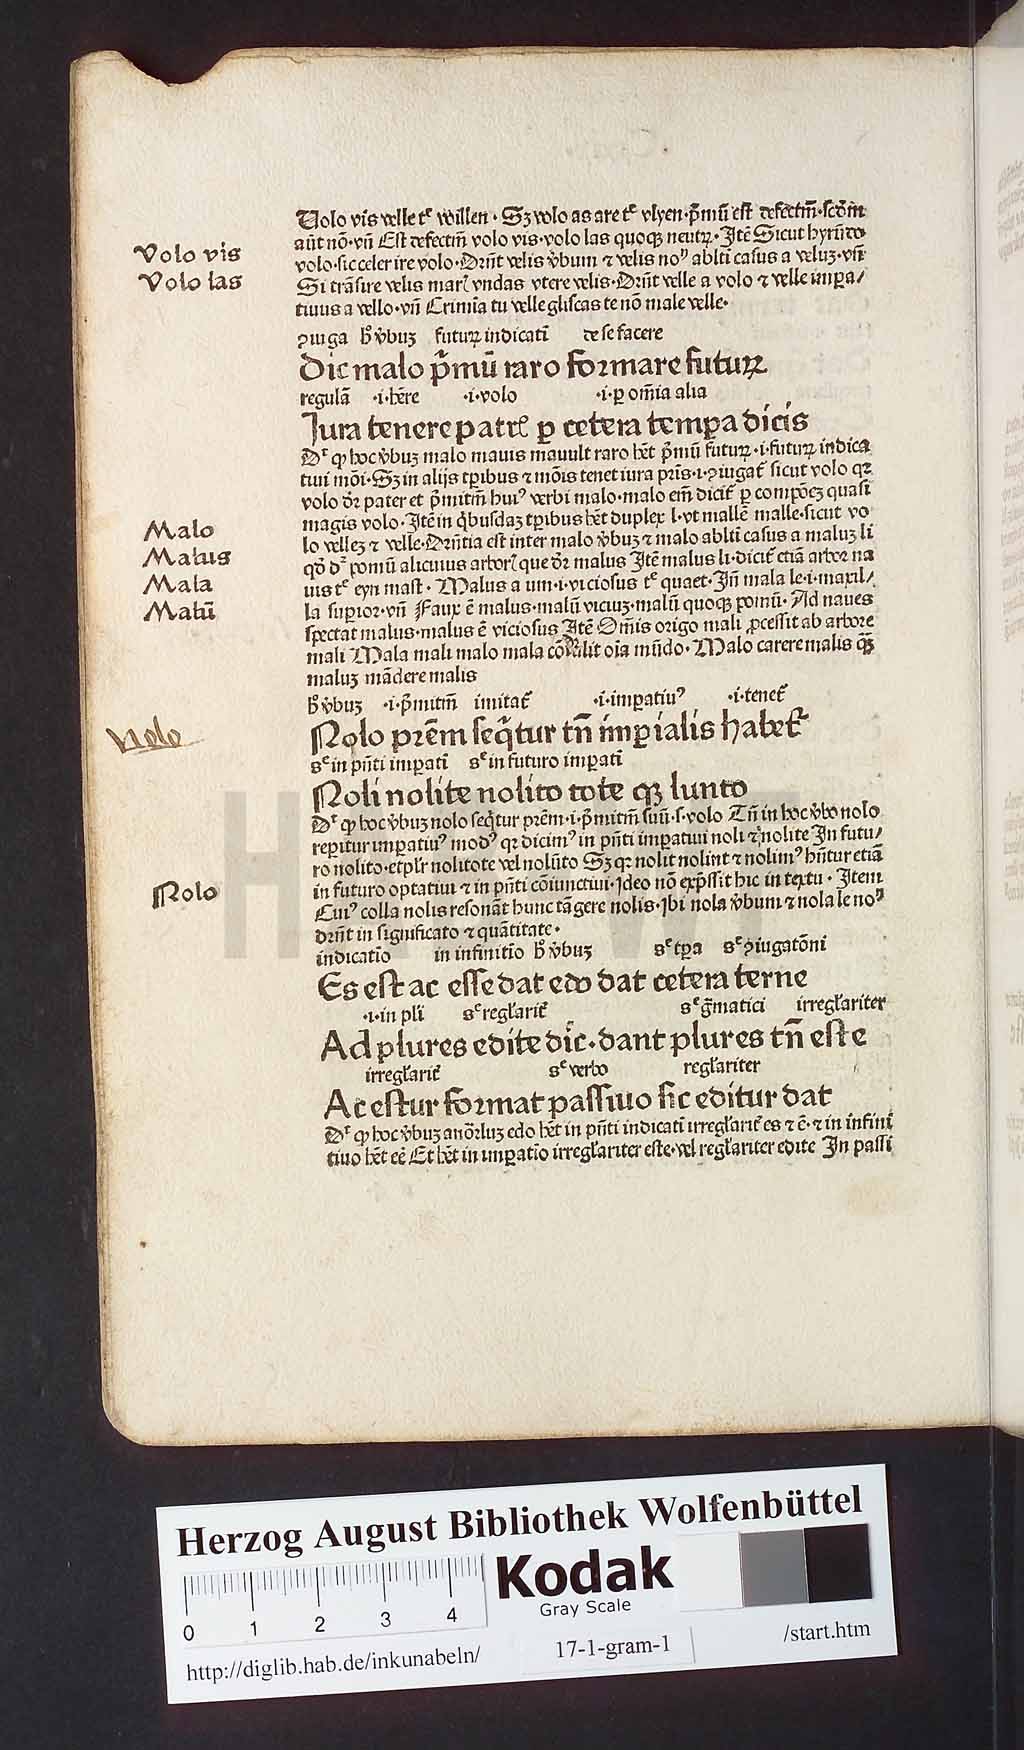 Uolo vis velle tͤ willen · Sꝫ volo as are tͤ vlyen · p̄mū est defectīn̄ · scd̄m
aūt nō · vn̄ Est defectīn̄ volo vis · volo las quoqꝫ neutꝝ · Itē Sicut hyrūdo
volo · sic celer ire volo · Drn̄t velis v̄bum ⁊ velis noꝰ ablti casus a veluꝫ · vn̄
Si trāsire velis maꝝ vndas vtere velis · Drn̄t velle a volo ⁊ velle impa/
tiuus a vello · vn̄ Crimīa tu velle gliscas te nō male velle ·
Volo vis
Volo las
ꝯiuga hͦ v̄buꝫ futuꝝ indicati de se facere
Dic malo p̄mū raro formare futuꝝ
regulā · i · hēre · i · volo · i · ꝑ om̄ia alia
Jura tenere patrꝭ ꝑ cetera tempa dicis
Dꝛ ꝙ hoc v̄buꝫ malo mauis mauult raro hēt p̄mū futuꝝ · i · futuꝝ indica
tiui mōi · Sꝫ in alijs tꝑibus ⁊ mōis tenet iura pr̄is · i · ꝯiugat̄ sicut volo qꝛ
volo dr̄ pater et p̄mitīn̄ huiꝰ verbi malo · malo em̄ dicit̄ ꝑ compōeꝫ quasi
magis volo · Itē in qͥbusdaꝫ tꝑibus hēt duplex l · vt mallē malle · sicut vo
lo velleꝫ ⁊ velle · Drn̄tia est inter malo v̄buꝫ ⁊ malo ablti casus a maluꝫ li
qd̄ dꝛ pomū alicuius arborꝭ que dr̄ malus Itē malus li · dicit̄ etiā arbor na
uis tͤ eyn mast · Malus a um · i · viciosus tͤ quaet · Jn̄ mala le · i · maxil/
la supior · vn̄ Faux ē malus · malū viciuꝫ · malū quoqꝫ pomū · Ad naues
spectat malus · malus ē viciosus Itē Om̄is origo mali ꝓcessit ab arbore
mali Mala mali malo mala cōtulit oīa mūdo · Malo carere malis qͣꝫ
maluꝫ mādere malis
Malo
Malus
Mala
Malū
hͦ v̄buꝫ · i · p̄mitīn̄ imitat̄ · i · impatiuꝰ · i · tenet̄
Nolo prēm seqͥtur tn̄ imꝑialis habet̄
sͤ in pn̄ti impati sͤ in futuro impati
Noli nolite nolito tote qꝫ lunto
Nolo
Dꝛ ꝙ hoc v̄buꝫ nolo seqͥtur prēm · i · p̄mitīn̄ suū · s · volo Tn̄ in hoc v̄bo nolo
reꝑitur impatiuꝰ modꝰ qꝛ dicimꝰ in pn̄ti impatiui noli ⁊ nolite In futu/
ro nolito · et plr̄ nolitote vel nolūto Sꝫ qꝛ nolit nolint ⁊ nolimꝰ hn̄tur etiā
in futuro optatiui ⁊ in pn̄ti cōiunctiui · Ideo nō exp̄ssit hic in textu · Item
Cuiꝰ colla nolis resonāt hunc tāgere nolis · Ibi nola v̄bum ⁊ nola le noꝰ
drn̄t in significato ⁊ quātitate ·
Nolo
indicatio in infinitio hͦ v̄buꝫ sͤ tꝑa sͤ ꝯiugatōni
Es est ac esse dat edo dat cetera terne
· i · in pli sͤ regl̄arit̄ sͤ gͣmatici irregl̄ariter
Ad plures edite dic̄ · dant plures tn̄ este
irregl̄arit̄ sͤ verbo regl̄ariter
Ac estur format passiuo sic editur dat
Dꝛ ꝙ hoc v̄buꝫ anōrluꝫ edo hēt in pn̄ti indicati irregl̄arit̄ es ⁊ ē · ⁊ in infini
tiuo hēt eē Et hēt in impatio irregl̄ariter este · vel regl̄ariter edite In passi
Herzog August Bibliothek Wolfenbüttel
Kodak
Gray Scale
0 1 2 3 4
http://diglib.hab.de/inkunabeln/
17-1-gram-1
/start.htm
HAB WF